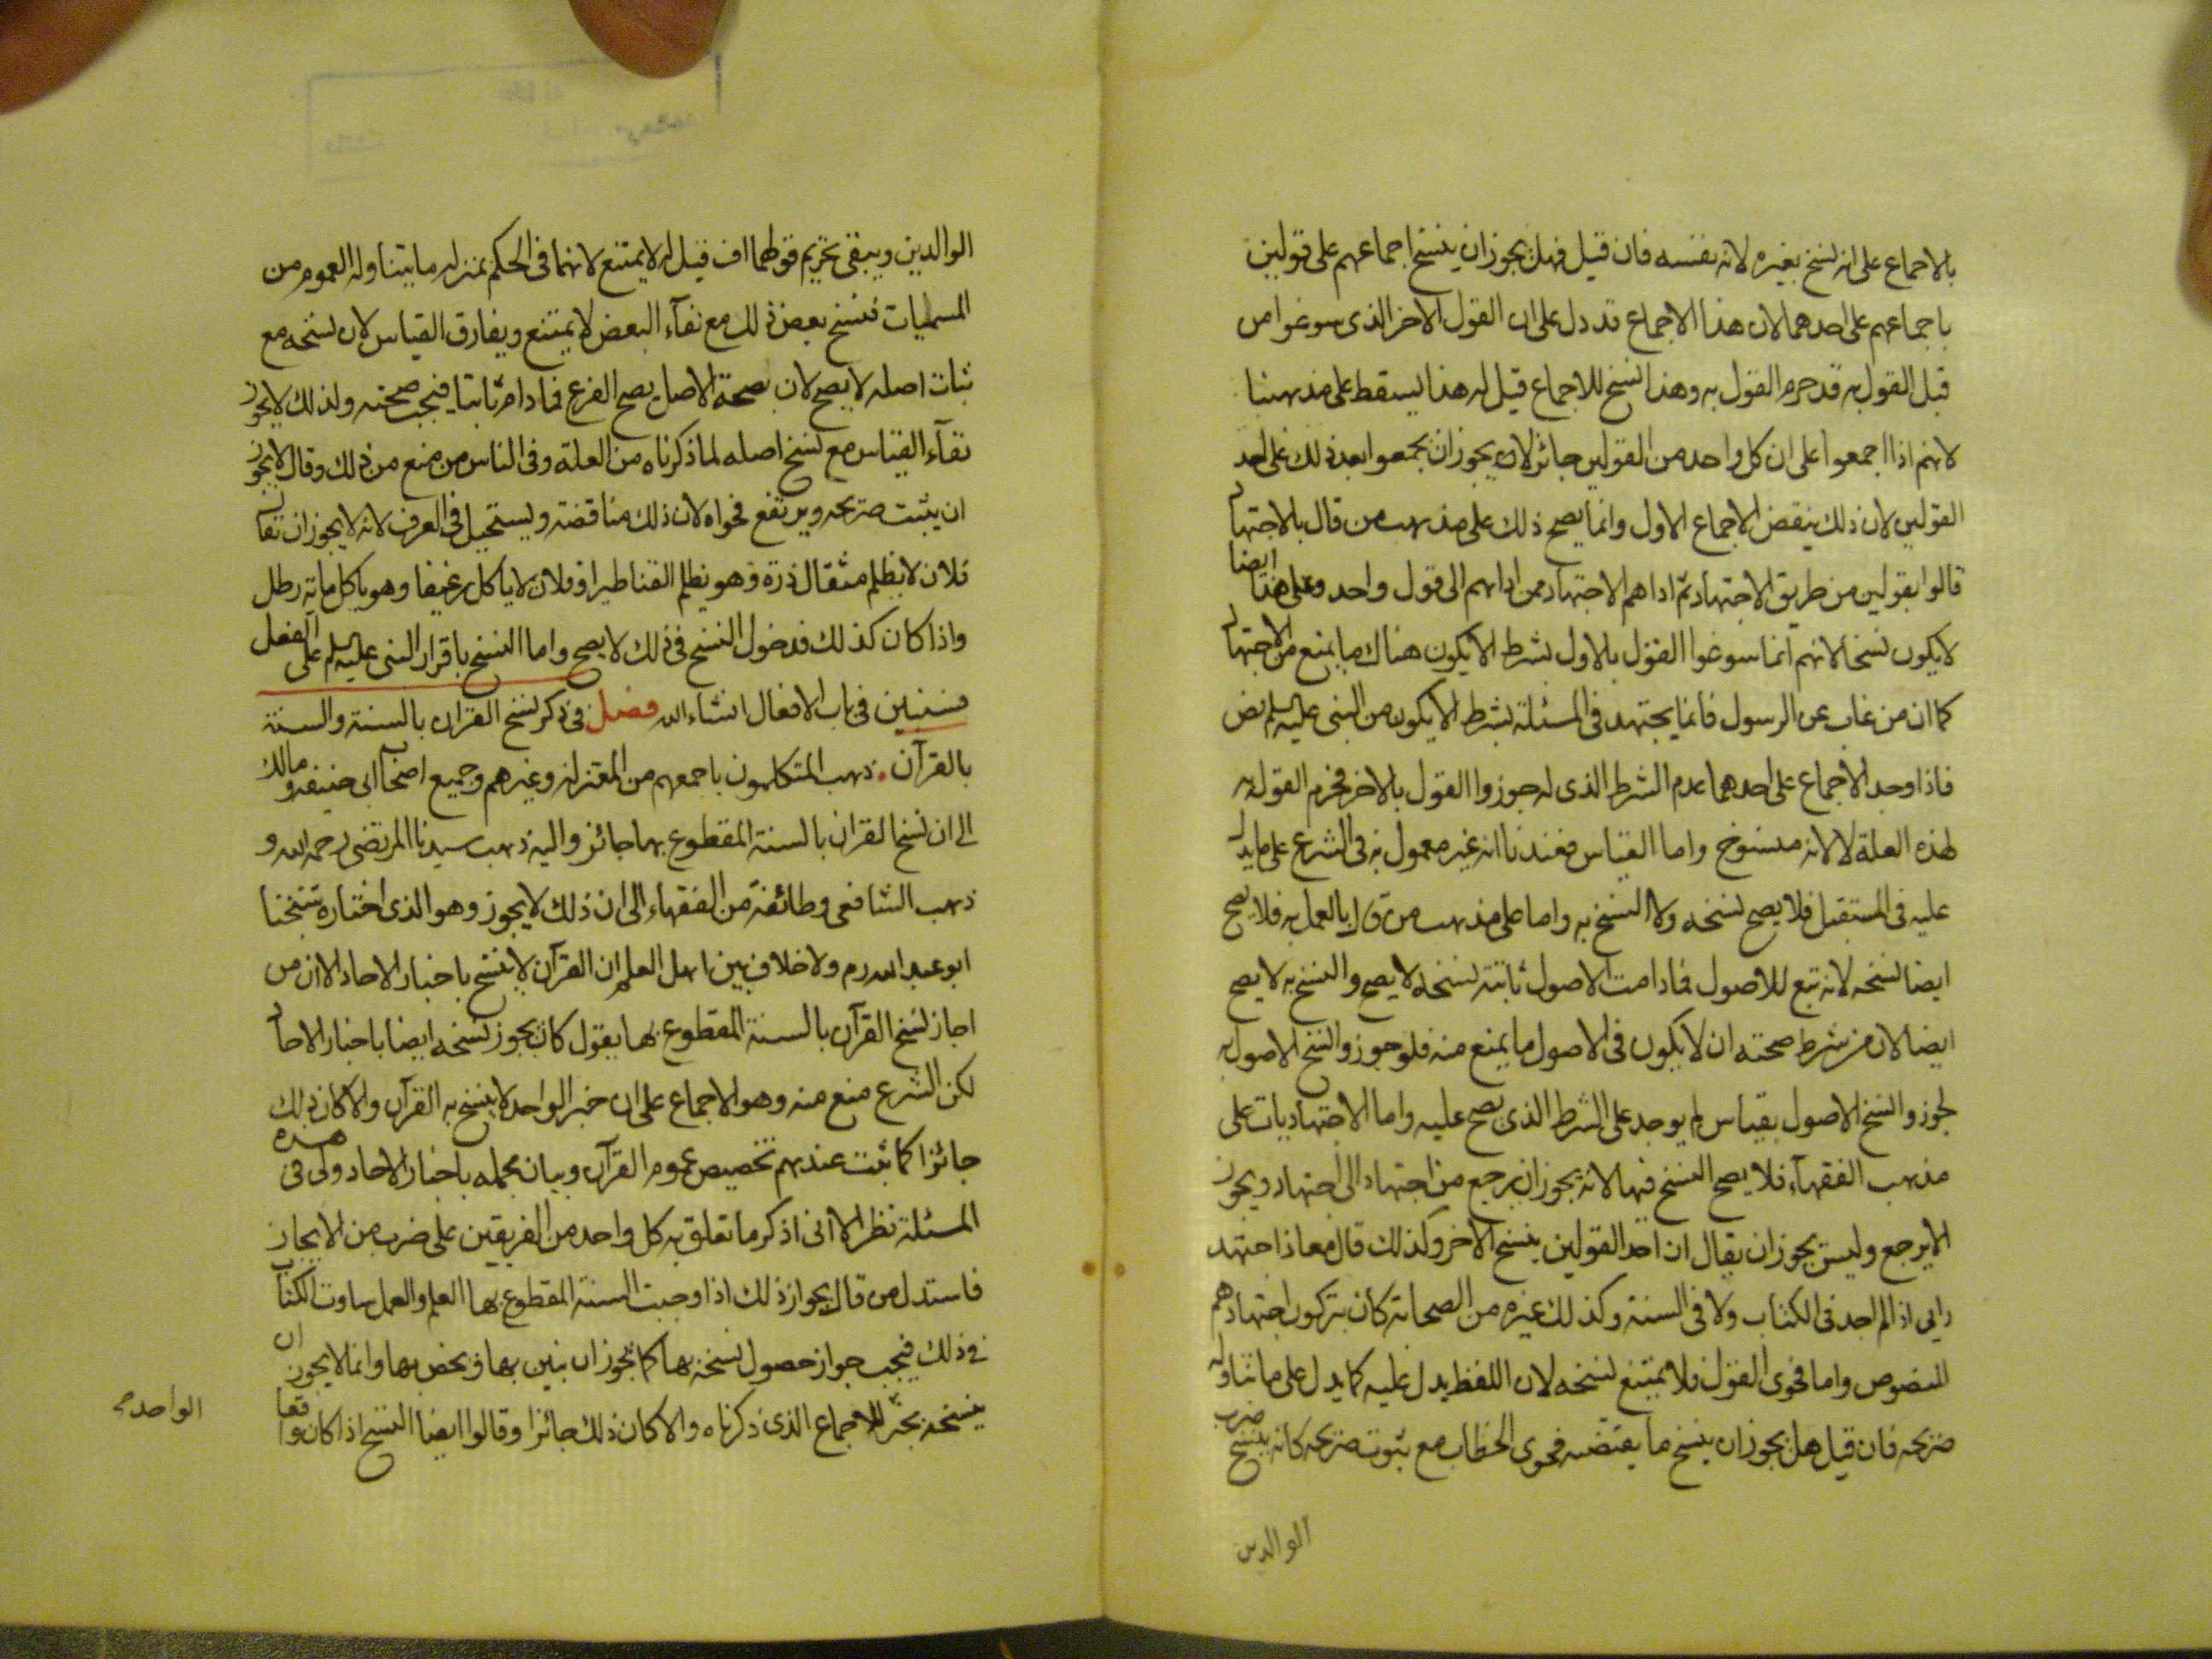 بالاجماع على انه نسخ بغيره لانه بنفسه فان قيل فهل يجوز ان ينسخ اجماعهم على قولين
باجماعهم على احدهما لان هذا الاجماع قد دل على ان القول الاخر الذى سوغوا من
قبل القول به قد حرم القول به وهذا نسخ للاجماع قيل له هذا يسقط على مذهبنا
لانهم اذا اجمعوا على ان كل واحد من القولين جائز لان يجوز ان يجمعوا بعد ذلك على احد
القولين لان ذلك ينقض الاجماع الاول وانما يصح ذلك على مذهب من قال بالاجتهاد
قالوا بقولين من طريق الاجتهاد ثم اداهم الاجتهاد من اداهم الى قول واحد وعلى هذا ايضا
لا يكون نسخا لانهم انما سوغوا القول بالاول بشرط الا يكون هناك ما يمنع من الاجتهاد
كما ان من غاب عن الرسول فانما يجتهد فى المسئلة بشرط الا يكون من النبى عليه السلم نص
فاذا وجد الاجماع على احدهما عدم الشرط الذى له جوزوا القول بالاخر فحرم القول به
لهذه العلة لا لانه منسوخ واما القياس فعندنا انه غير معمول به فى الشرع على ما يدل
عليه فى المستقبل فلا يصح نسخه ولا النسخ به واما على مذهب من قال بالعمل به فلا يصح
ايضا نسخه لانه تبع للاصول فما دامت الاصول ثابتة نسخه لا يصح والنسخ به لا يصح
ايضا لان من شرط صحته ان لا يكون فى الاصول ما يمنع منه فلو جوزوا نسخ الاصول به
لجوزوا نسخ الاصول بقياس لم يوجد على الشرط الذى يصح عليه واما الاجتهاديات على
مذهب الفقهاء فلا يصح النسخ فيها لانه يجوز ان يرجع من اجتهاد الى اجتهاد ويجوز
الا يرجع وليس يجوز ان يقال ان احد القولين ينسخ الاخر وكذلك قال معاذ اجتهد
رايى اذا لم اجد فى الكتاب ولا فى السنة وكذلك غيره من الصحابة كان يتركون اجتهادهم
للنصوص واما فحوى القول فلا يمتنع نسخه لان اللفظ يدل عليه كما يدل على ما تناوله
صريحه فان قيل هل يجوز ان ينسخ ما يقتضيه فحوى الخطاب مع ثبوت صريحه كانه ينسخ ضرب
الوالدين
الوالدين ويبقى تحريم قوله لهما اف قيل له لا يمتنع لانهما فى الحكم بمنزلة ما يتناوله العموم من
المسميات فنسخ بعض ذلك مع بقآء البعض لا يمتنع ويفارق القياس لان نسخه مع
ثبات اصله لا يصح لان بصحة الاصل يصح الفرع فما دام ثابتا فيجب صحته ولذلك لا يجوز
بقآء القياس مع نسخ اصله لما ذكرناه من العلة وفى الناس من منع من ذلك وقال لا يجوز
ان يثبت صريحه ويرتفع فحواه لان ذلك مناقضة ويستحيل فى العرف لانه لا يجوز ان يقال
فلان لا يظلم مثقال ذرة وهو يظلم القناطير او فلان لا ياكل رغيفا وهو ياكل ماية رطل
واذا كان كذلك فدخول النسخ فى ذلك لا يصح واما النسخ باقرار النبى عليه السلم على الفعل
فسنبين فى باب الافعال انشاء الله فصل فى ذكر نسخ القران بالسنة والسنة
بالقرآن . ذهب المتكلمون باجمعهم من المعتزلة وغيرهم وجميع اصحاب ابى حنيفة ومالك
الى ان نسخ القران بالسنة المقطوع بها جائز واليه ذهب سيدنا المرتضى رحمه الله و
ذهب الشافعى وطائفة من الفقهاء الى ان ذلك لا يجوز وهو الذى اختاره شيخنا
ابو عبد الله ره ولا خلاف بين اهل العلم ان القرآن لا ينسخ باخبار الاحاد الا ان من
اجاز نسخ القرآن بالسنة المقطوع بها يقول كان يجوز نسخه ايضا باخبار الاحاد
لكن الشرع منع منه وهو الاجماع على ان خبر الواحد لا ينسخ به القرآن والا كان ذلك
جائزا كما ثبت عندهم تخصيص عموم القرآن وبيان مجمله باخبار الاحاد ولى فى هذه
المسئلة نظر الا انى اذكر ما تعلق به كل واحد من الفريقين على ضرب من الايجاز
فاستدل من قال بجواز ذلك اذا وجبت السنة المقطوع بها العلم والعمل ساوت الكتاب
فى ذلك فيجب جواز حصول نسخه بها كما يجوز ان يبين بها ويخص بها وانما لا يجوز ان
ينسخه بخبر للاجماع الذى ذكرناه والا كان ذلك جائزا وقالوا ايضا النسخ اذا كان واقعا
الواحد صح